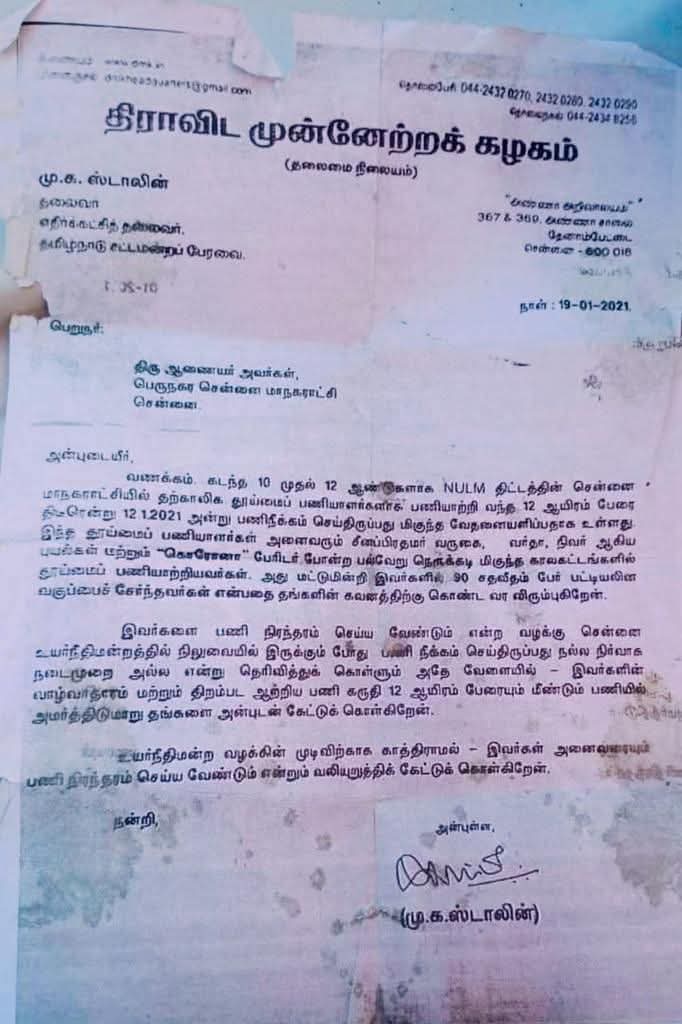 இணையம் : www.dmk.in
மின்னஞ்சல் : dmkheadquaters@gmail.com
தொலைபேசி 044-2432 0270, 2432 0280, 2432 0290
தொலைநகல் 044-2434 8256
திராவிட முன்னேற்றக் கழகம்
(தலைமை நிலையம்)
மு.க. ஸ்டாலின்
தலைவர்
எதிர்க்கட்சித் தலைவர்,
தமிழ்நாடு சட்டமன்றப் பேரவை.
"அண்ணா அறிவாலயம்"
367 & 369, அண்ணா சாலை
தேனாம்பேட்டை
சென்னை - 600 018
நாள் : 19-01-2021.
பெறுநர்:
திரு ஆணையர் அவர்கள்,
பெருநகர சென்னை மாநகராட்சி
சென்னை.
அன்புடையீர்,
வணக்கம். கடந்த 10 முதல் 12 ஆண்டுகளாக NULM திட்டத்தின் சென்னை
மாநகராட்சியில் தற்காலிக தூய்மைப் பணியாளர்களாகப் பணியாற்றி வந்த 12 ஆயிரம் பேரை
திடீரென்று 12.1.2021 அன்று பணிநீக்கம் செய்திருப்பது மிகுந்த வேதனையளிப்பதாக உள்ளது.
இந்த தூய்மைப் பணியாளர்கள் அனைவரும் சீனப்பிரதமர் வருகை, வர்தா, நிவர் ஆகிய
புயல்கள் மற்றும் "கொரோனா" பேரிடர் போன்ற பல்வேறு நெருக்கடி மிகுந்த காலகட்டங்களில்
தூய்மைப் பணியாற்றியவர்கள். அது மட்டுமின்றி இவர்களில் 90 சதவீதம் பேர் பட்டியலின
வகுப்பைச் சேர்ந்தவர்கள் என்பதை தங்களின் கவனத்திற்கு கொண்ட வர விரும்புகிறேன்.
இவர்களை பணி நிரந்தரம் செய்ய வேண்டும் என்ற வழக்கு சென்னை
உயர்நீதிமன்றத்தில் நிலுவையில் இருக்கும் போது பணி நீக்கம் செய்திருப்பது நல்ல நிர்வாக
நடைமுறை அல்ல என்று தெரிவித்துக் கொள்ளும் அதே வேளையில் - இவர்களின்
வாழ்வாதாரம் மற்றும் திறம்பட ஆற்றிய பணி கருதி 12 ஆயிரம் பேரையும் மீண்டும் பணியில்
அமர்த்திடுமாறு தங்களை அன்புடன் கேட்டுக் கொள்கிறேன்.
உயர்நீதிமன்ற வழக்கின் முடிவிற்காக காத்திராமல் - இவர்கள் அனைவரையும்
பணி நிரந்தரம் செய்ய வேண்டும் என்றும் வலியுறுத்திக் கேட்டுக் கொள்கிறேன்.
நன்றி,
அன்புள்ள,
(மு.க.ஸ்டாலின்)